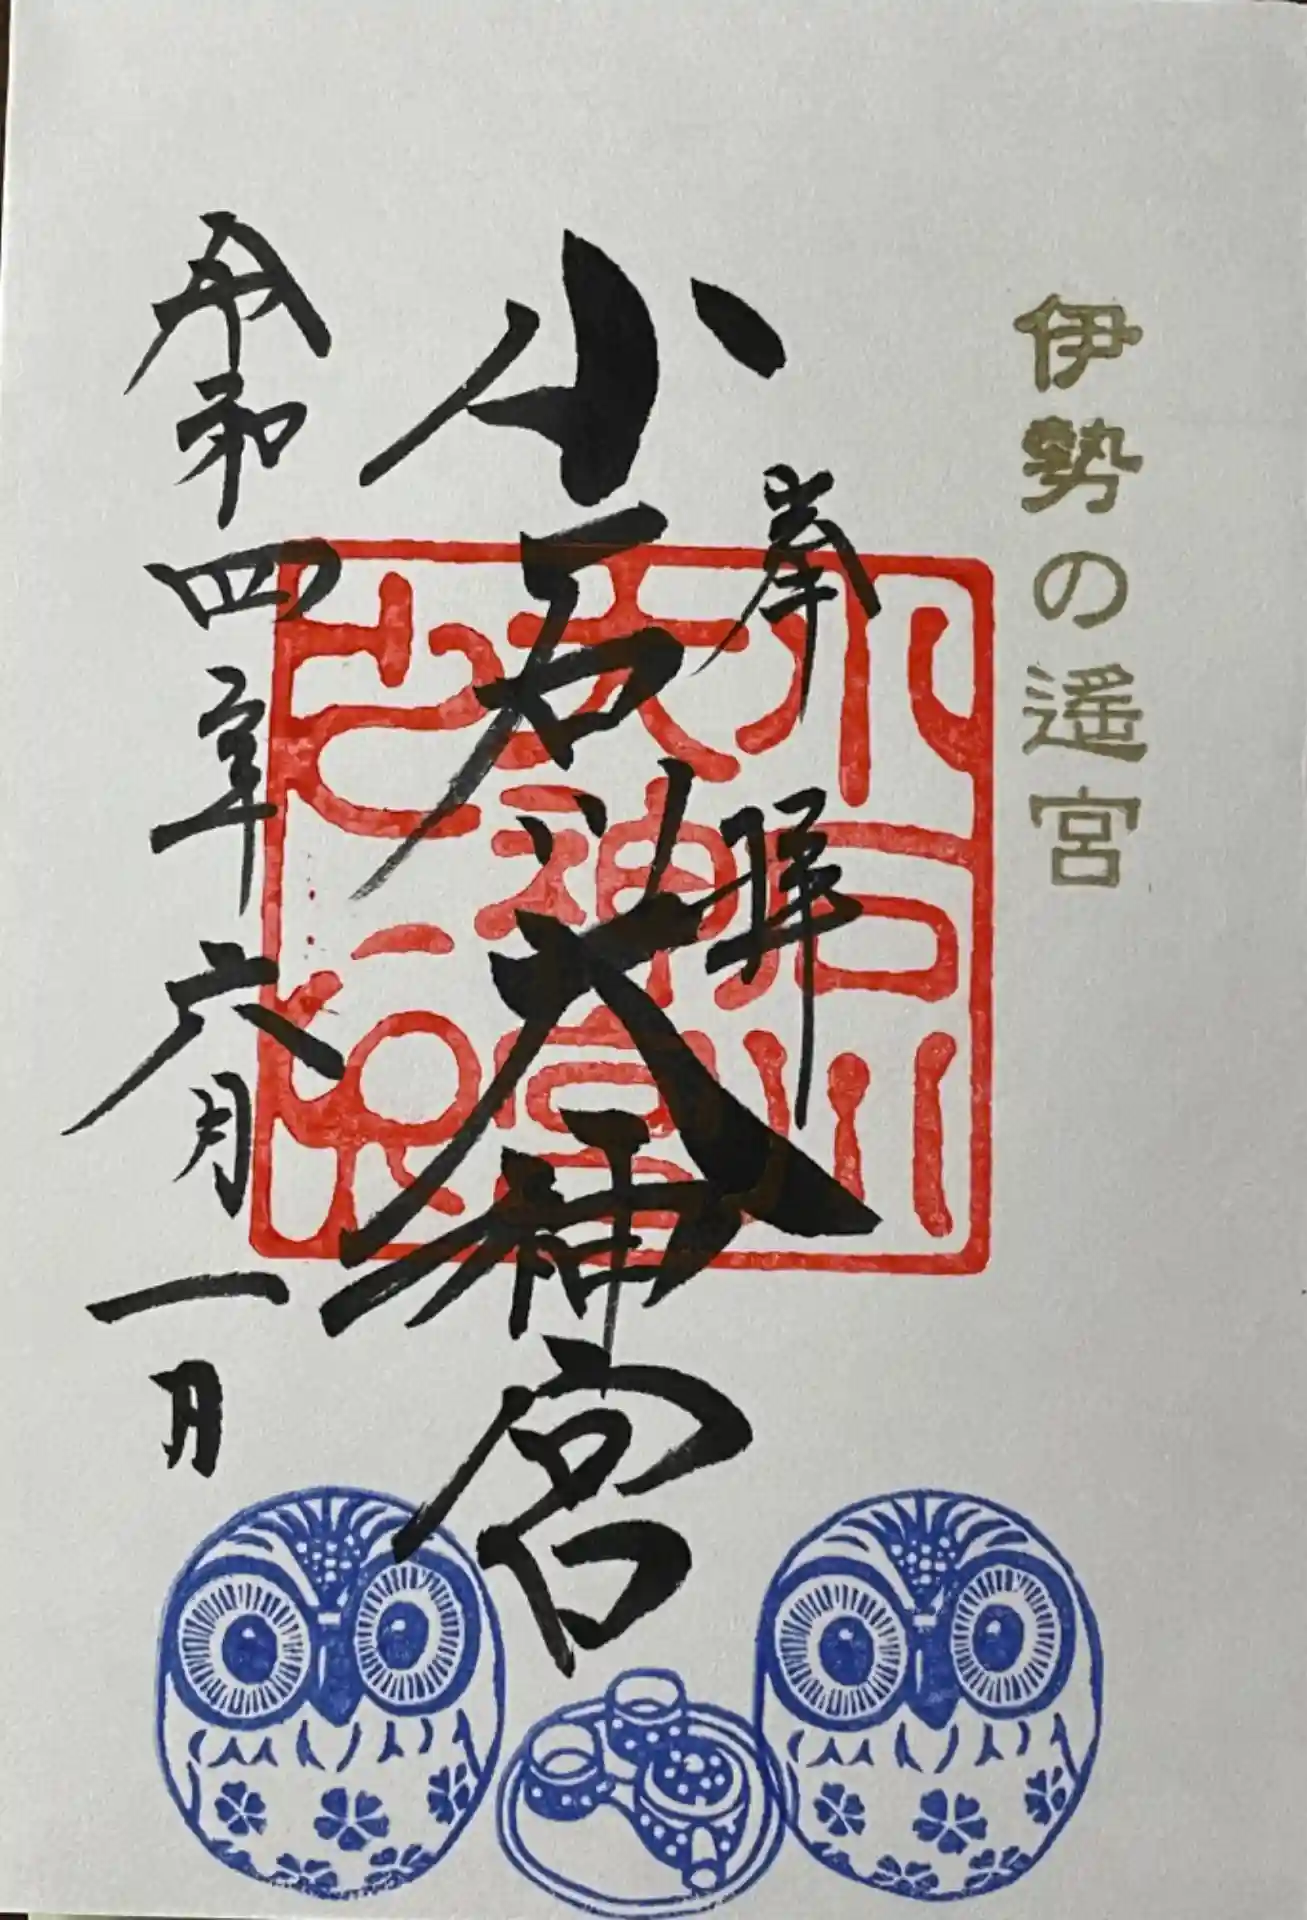 伊勢の遙宮
奉拝
小石川大神宮
令和四年六月一日
小石川
大神宮